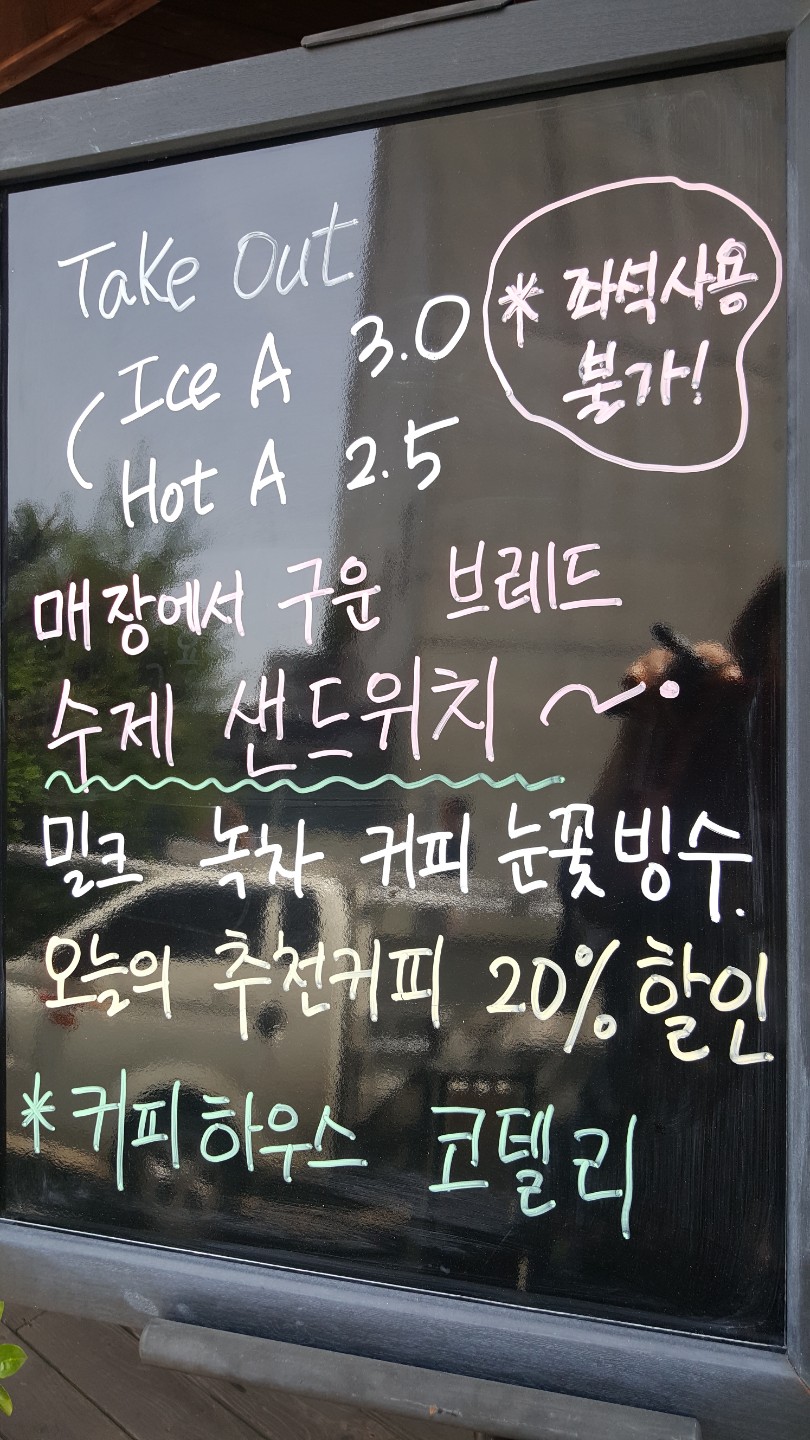 Take Out
Ice A 3.0
Hot A 2.5
* 좌석사용
불가!
매장에서 구운 브레드
수제 샌드위치 ~
밀크 녹차 커피 눈꽃빙수.
오늘의 추천커피 20% 할인
* 커피하우스 코텔리